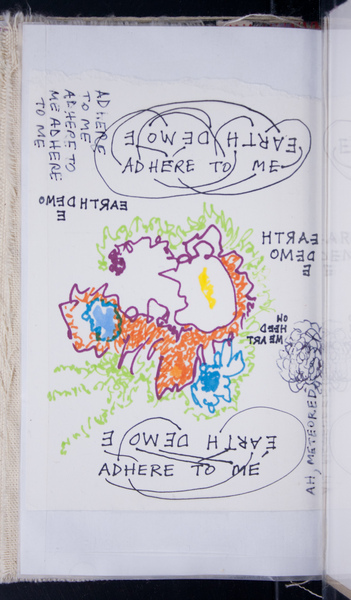 ADHERE
TO ME
ADHERE TO
ME ADHERE
TO ME
EARTH DEMO E
ADHERE TO ME
EARTH DEMO
E
EARTH
DEMO
E
WE ART
HEED
ON
AH, METEORED
EARTH DEMO E
ADHERE TO ME